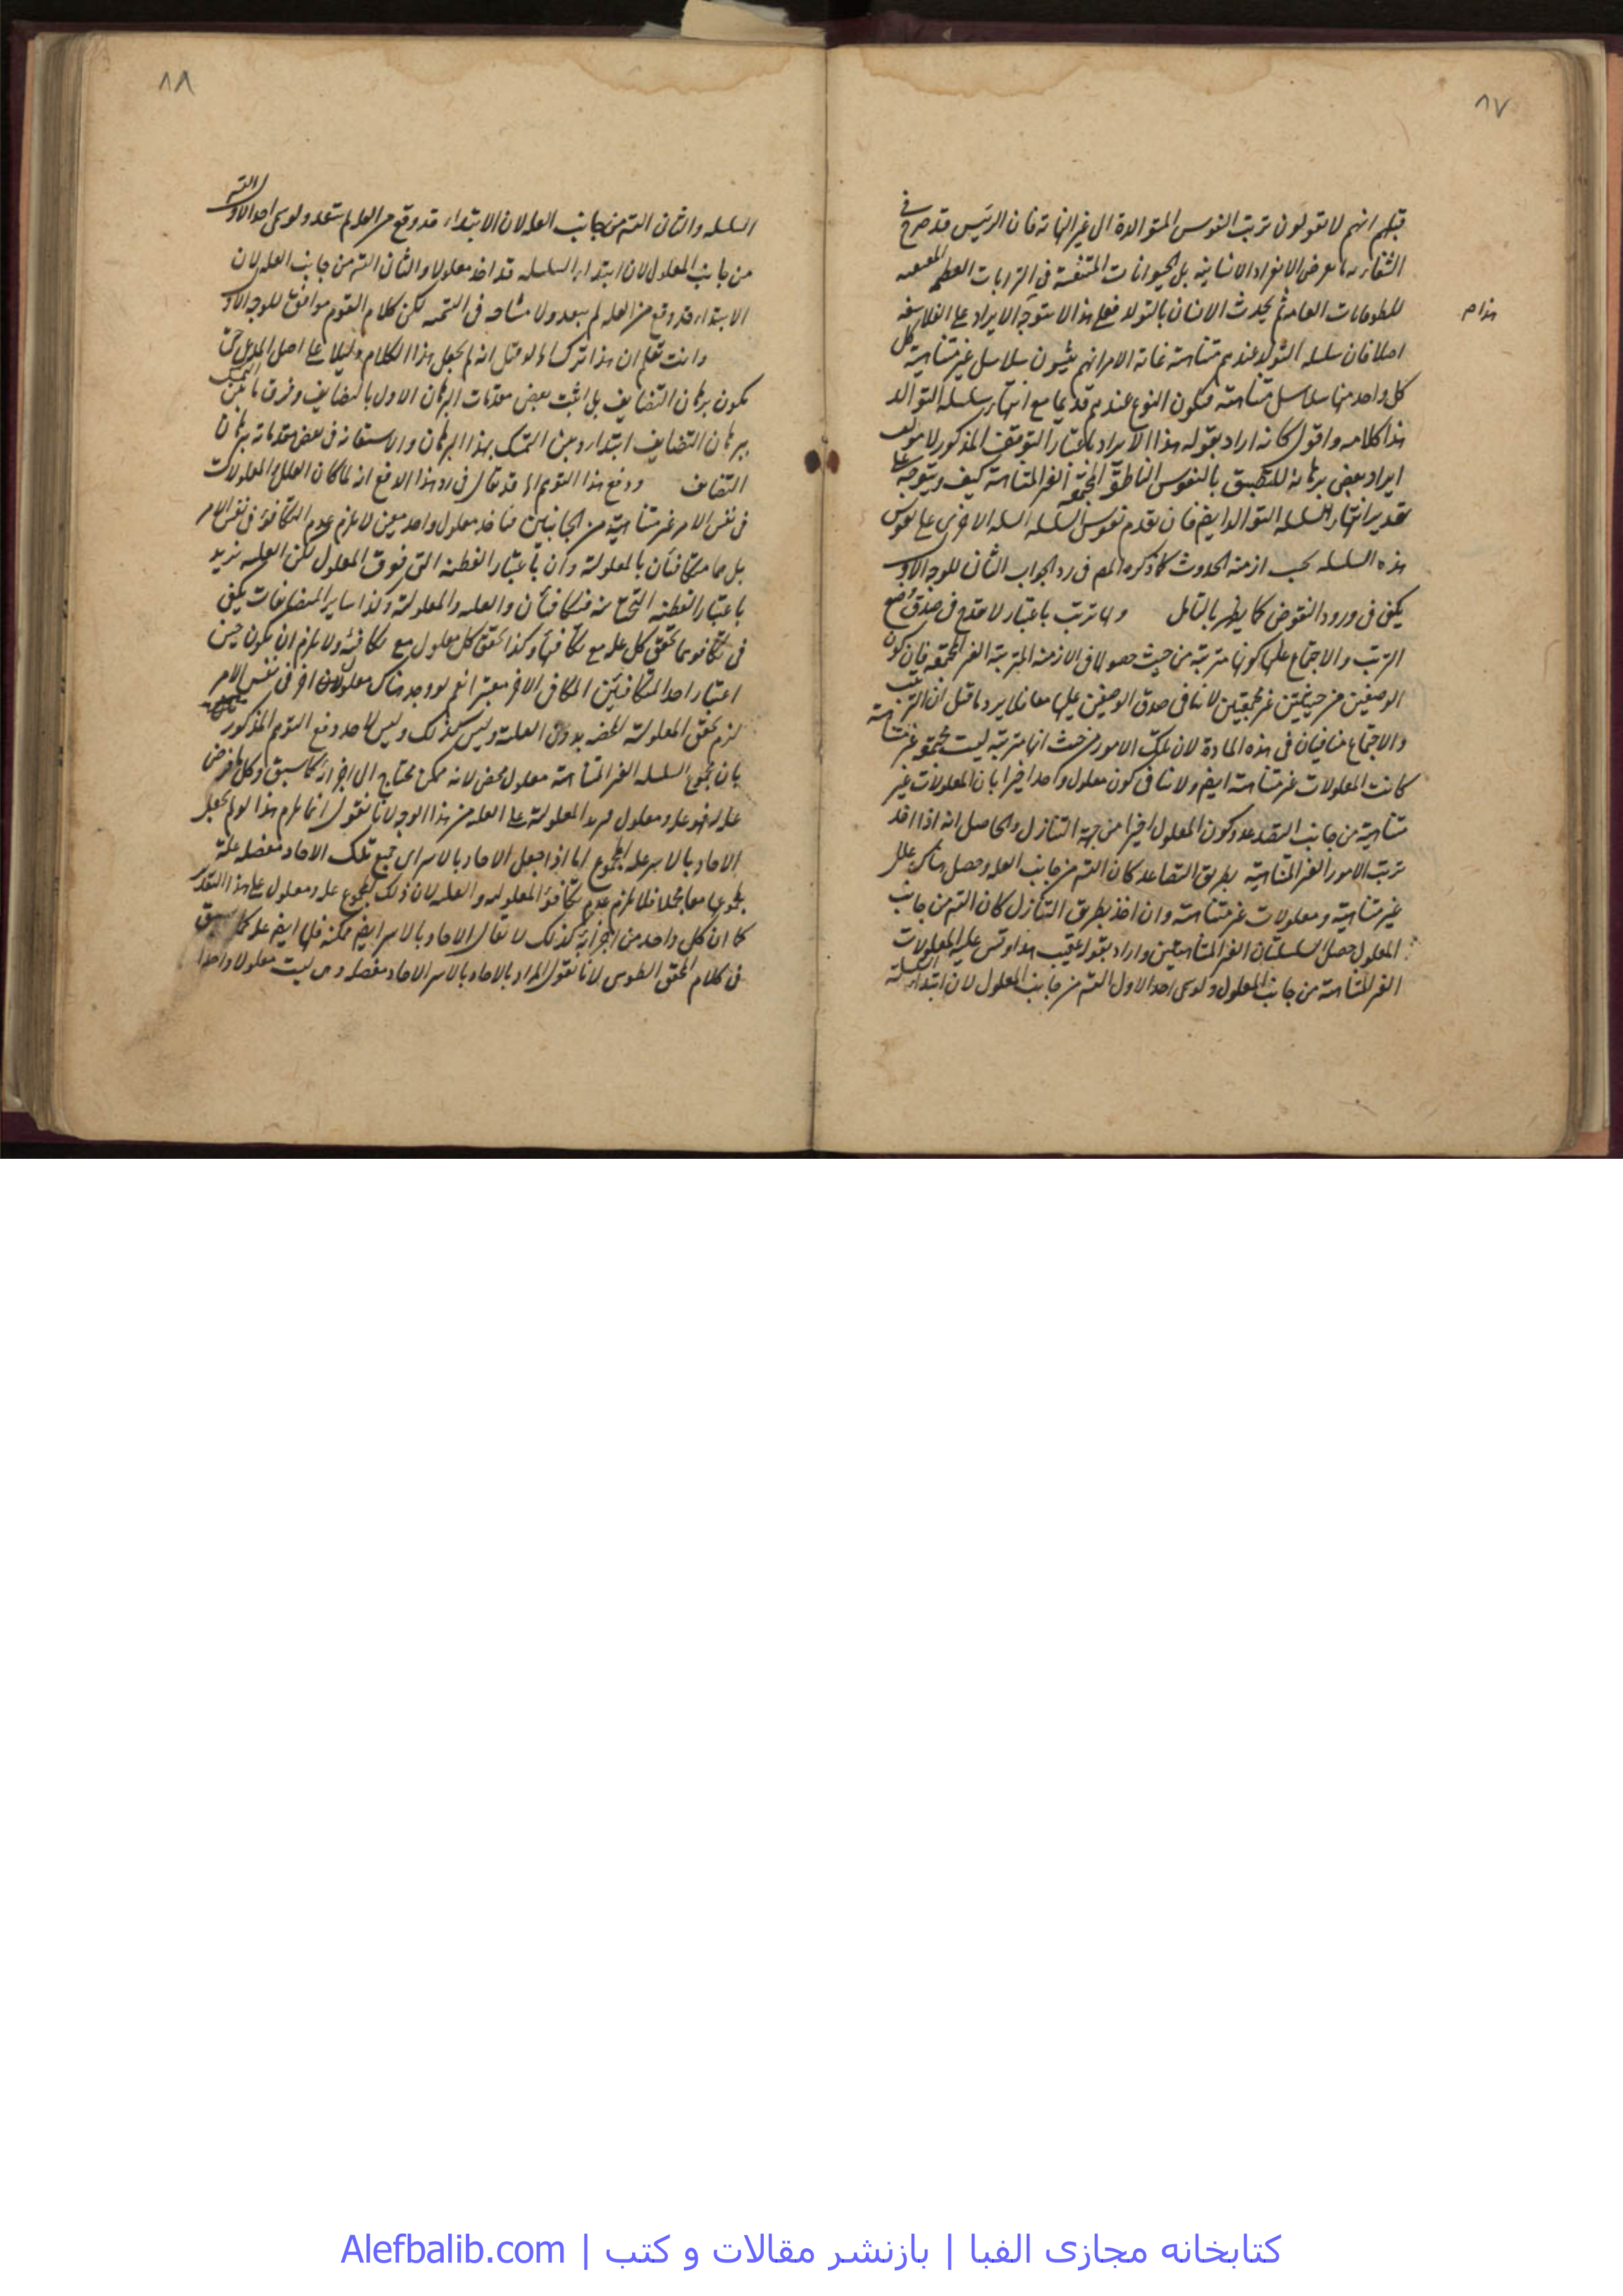 ٨٧
قبلهم انهم لا يقولون بترتب النفوس المتوالدة الى غير النهاية فان الرئيس قد صرح في
الشفاء بانقراض الافراد الانسانية بل الحيوانات المتنفسة في
للطوفانات العامة ثم يحدث الانسان بالتولد فعلى هذا لا يتوجه الايراد على الفلاسفة
هذا م
اصلا فان سلسلة التولد عندهم متناهية غاية الامر انهم يثبتون سلاسل غير متناهية كل
كل واحد منها سلاسل متناهية فيكون النوع عندهم قديما مع انتهاء سلسلة التوالد
هذا كلامه واقول كانه اراد بقوله هذا الايراد باعتبار التوقف المذكور لا
ايراد بعض برهانه للتطبيق بالنفوس الناطقة المجتمعة الغير المتناهية كيف ويتوجه على
تقدير انتهاء السلسلة التوالد ايضا فان تقدم نفوس السلسلة السلسلة الاخرى على نفوس
هذه السلسلة بحسب ازمنة الحدوث كما ذكره المص في رد الجواب الثاني للوجه الاول
يكفي في ورود النقوض كما يظهر بالتأمل ولها ترتب باعتبار لا يقدح في صدق
الترتب والاجتماع عليها كونها مترتبة من حيث حصولها في الازمنة المترتبة الغير المجتمعة فان كون
الوصفين من حيثيتين غير مجتمعتين لا ينافي صدق الوصفين عليها معا فلا يرد ما قيل ان الترتب
والاجتماع متنافيان في هذه المادة لان تلك الامور من حيث انها مترتبة ليست مجتمعة غير متناهية
كانت المعلولات غير متناهية ايضا ولا ينافي كون معلول واحد اخيرا بان المعلولات غير
متناهية من جانب التصاعد وكون المعلول اخيرا من جهة التنازل والحاصل انه اذا اخذ
ترتب الامور الغير المتناهية بطريق التصاعد كان التسم من جانب العلة وحصل هناك علل
غير متناهية ومعلولات غير متناهية وان اخذ بطريق التنازل كان التسم من جانب
المعلول حصل السلسلتان الغير المتناهيتين واراد بقوله عقيب هذا وقس عليه المعلولات
الغير المتناهية من جانب المعلول ولو سمى احد الاول التسم من جانب المعلول لان ابتداء السلسلة
٨٨
السلسلة والثاني التسم من جانب العلة لان الابتداء قد وقع من العلة لم يبعد ولو سمى احد الاول التسم
من جانب المعلول لان ابتداء السلسلة قد اخذ معلولا والثاني التسم من جانب العلة لان
الابتداء قد وقع من العلة لم يبعد ولا مشاحة في التسمية لكن كلام القوم موافق للوجه الاول
وانت تعلم ان هذا انه لم يجعل هذا الكلام دليلا على اصل المدعى حتى
يكون برهان التضايف بل اثبت بعض مقدمات البرهان الاول بالتضايف وفرق ما بين التمسك
ببرهان التضايف ابتداء وبين التمسك بهذا البرهان والاستعانة في بعض مقدماته ببرهان
التضايف ودفع هذا التوهم قد يقال في رد هذا الدفع انه لما كان العلل والمعلولات
في نفس الامر غير متناهية من الجانبين فاخذ معلول واحد معين لا يلزم عدم التكافؤ في نفس الامر
بل هما متكافئان بالمعلولية وان باعتبار القطعة التي فوق المعلول لكن العلية تزيد
باعتبار القطعة التحتانية فيتكافئان والعلية والمعلولية وكذا ساير المتضايفات يكفي
في تكافوهما تحقق كل علة مع تكافيها وكذا تحقق كل معلول مع تكافيه ولا يلزم ان يكون حين
اعتبار احد المتكافئين المكافي الاخر معتبرا نعم لو وجد هناك معلول اخر في نفس الامر
لزم تحقق المعلولية المحضة بدون العلية وليس كذلك وليس لاحد دفع التوهم المذكور
بان مجموع السلسلة الغير المتناهية معلول محض لانه ممكن محتاج الى اجزائه كما سبق وكل ما فرض
علة فهو علة ومعلول فيزيد المعلولية على العلية من هذا الوجه لانا نقول انما يلزم هذا لو لم يجعل
الاحاد بالاسر علة المجموع اما اذا جعل الاحاد بالاسر اي جميع تلك الاحاد مفصلة علة
لمجموعها معا مجملا فلا يلزم عدم تكافؤ المعلولية والعلية لان ذلك المجموع علة ومعلول على هذا التقدير
كما ان كل واحد من اجزائه كذلك لا يقال الاحاد بالاسر ايضا ممكنة فلها ايضا علة كما سبق
في كلام المحقق الطوسي لانا نقول المراد بالاحاد بالاسر الاحاد مفصلة وهي ليست معلولا واحدا
کتابخانه مجازی الفبا | بازنشر مقالات و کتب | Alefbalib.com